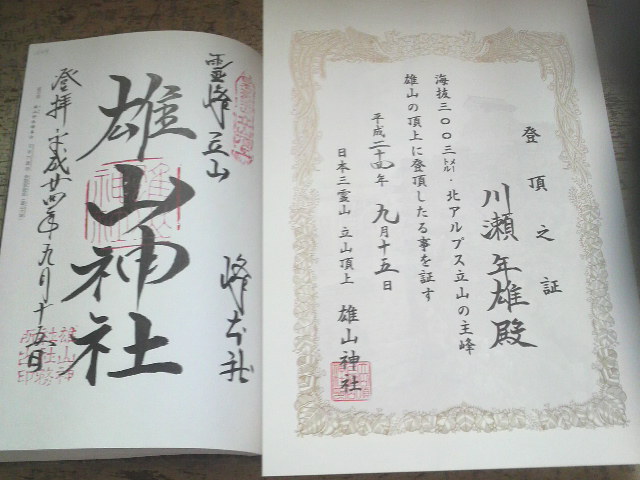 登頂之証
川瀬年雄殿
海抜三〇〇三㍍・北アルプス立山の主峰
雄山の頂上に登頂したる事を証す
平成二十四年九月十五日
日本三霊山 立山頂上 雄山神社
霊峰立山 峰本社
雄山神社
登拝 平成廿四年九月十五日
雄山神
社社務
所之印